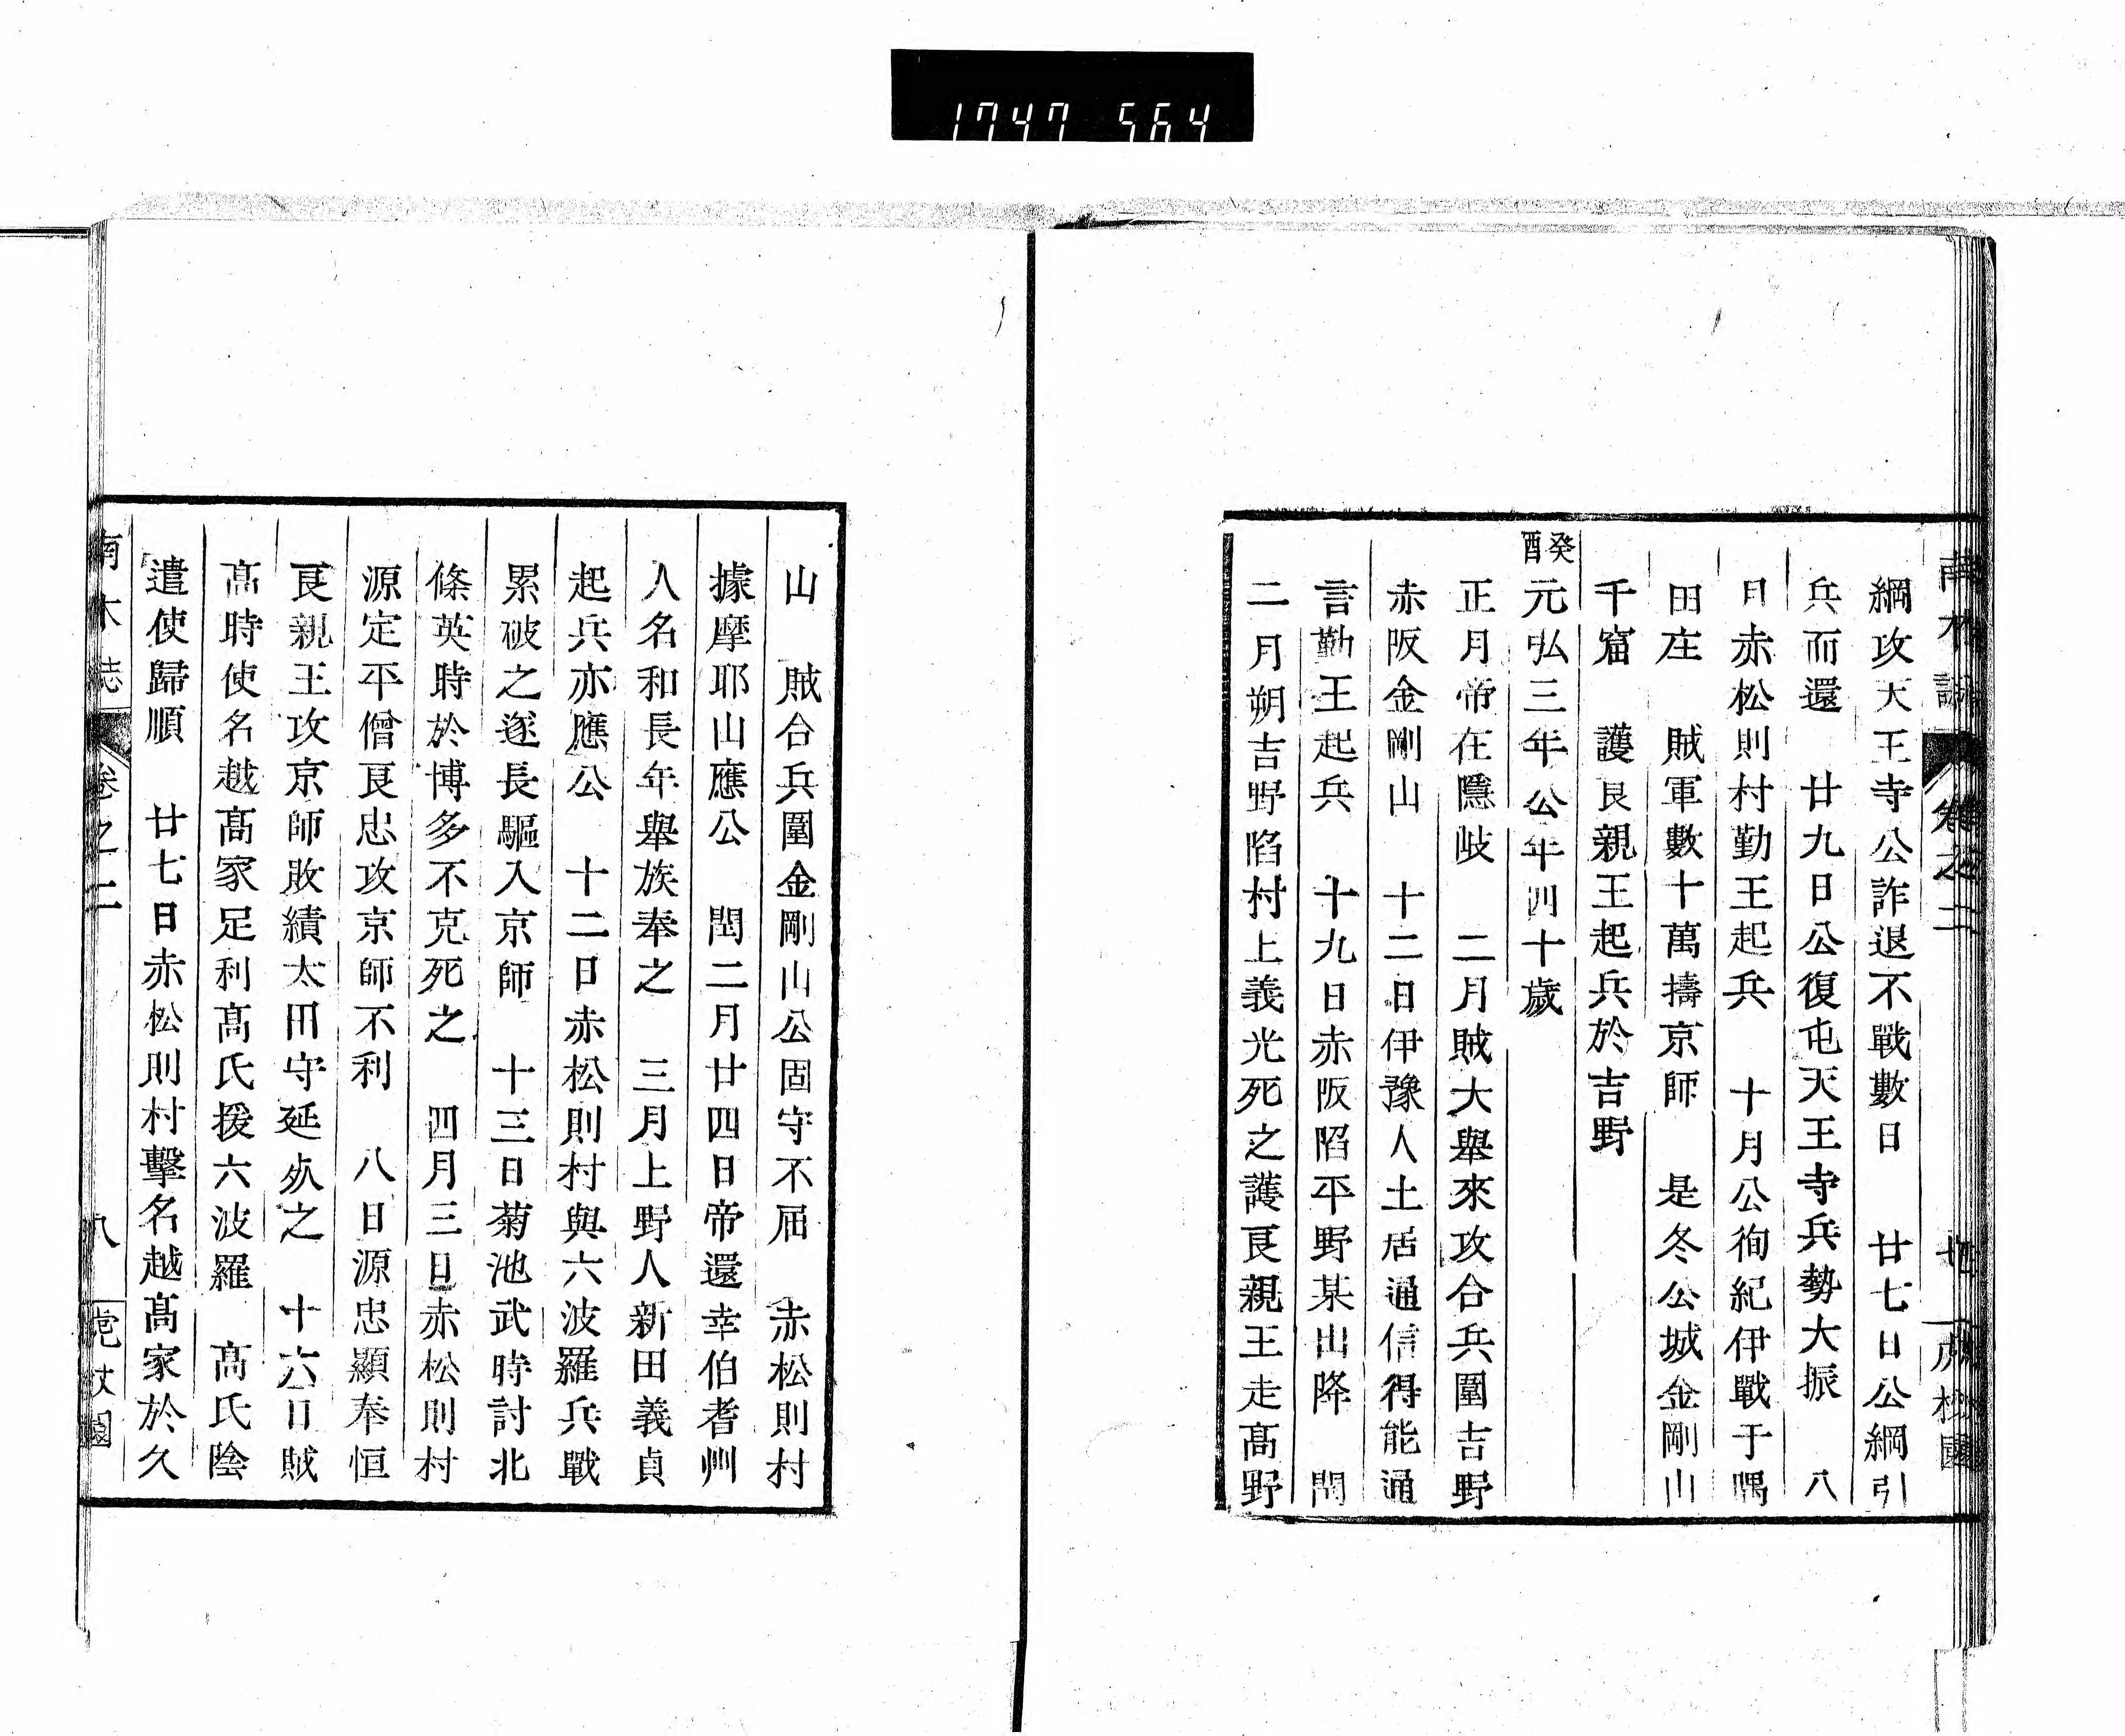 1747 564
南木誌 卷之二
綱攻天王寺公詐退不戰數日　廿七日公綱引
兵而還　廿九日公復屯天王寺兵勢大振　八
日赤松則村勤王起兵　十月公徇紀伊戰于隅
田庄　賊軍數十萬擣京師　是冬公城金剛山
千窟　護良親王起兵於吉野
癸酉
元弘三年公年四十歲
正月帝在隱岐　二月賊大舉來攻合兵圍吉野
赤阪金剛山　十二日伊豫人土居通信得能通
言勤王起兵　十九日赤阪陷平野某出降　閏
二月朔吉野陷村上義光死之護良親王走髙野
山　賊合兵圍金剛山公固守不屈　赤松則村
據摩耶山應公　閏二月廿四日帝還幸伯耆州
人名和長年舉族奉之　三月上野人新田義貞
起兵亦應公　十二日赤松則村與六波羅兵戰
累破之逐長驅入京師　十三日菊池武時討北
條英時於博多不克死之　四月三日赤松則村
源定平僧良忠攻京師不利　八日源忠顯奉恒
良親王攻京師敗績太田守延死之　十六日賊
髙時使名越髙家足利髙氏援六波羅　髙氏陰
遣使歸順　廿七日赤松則村擊名越髙家於久
南木誌 卷之二 八